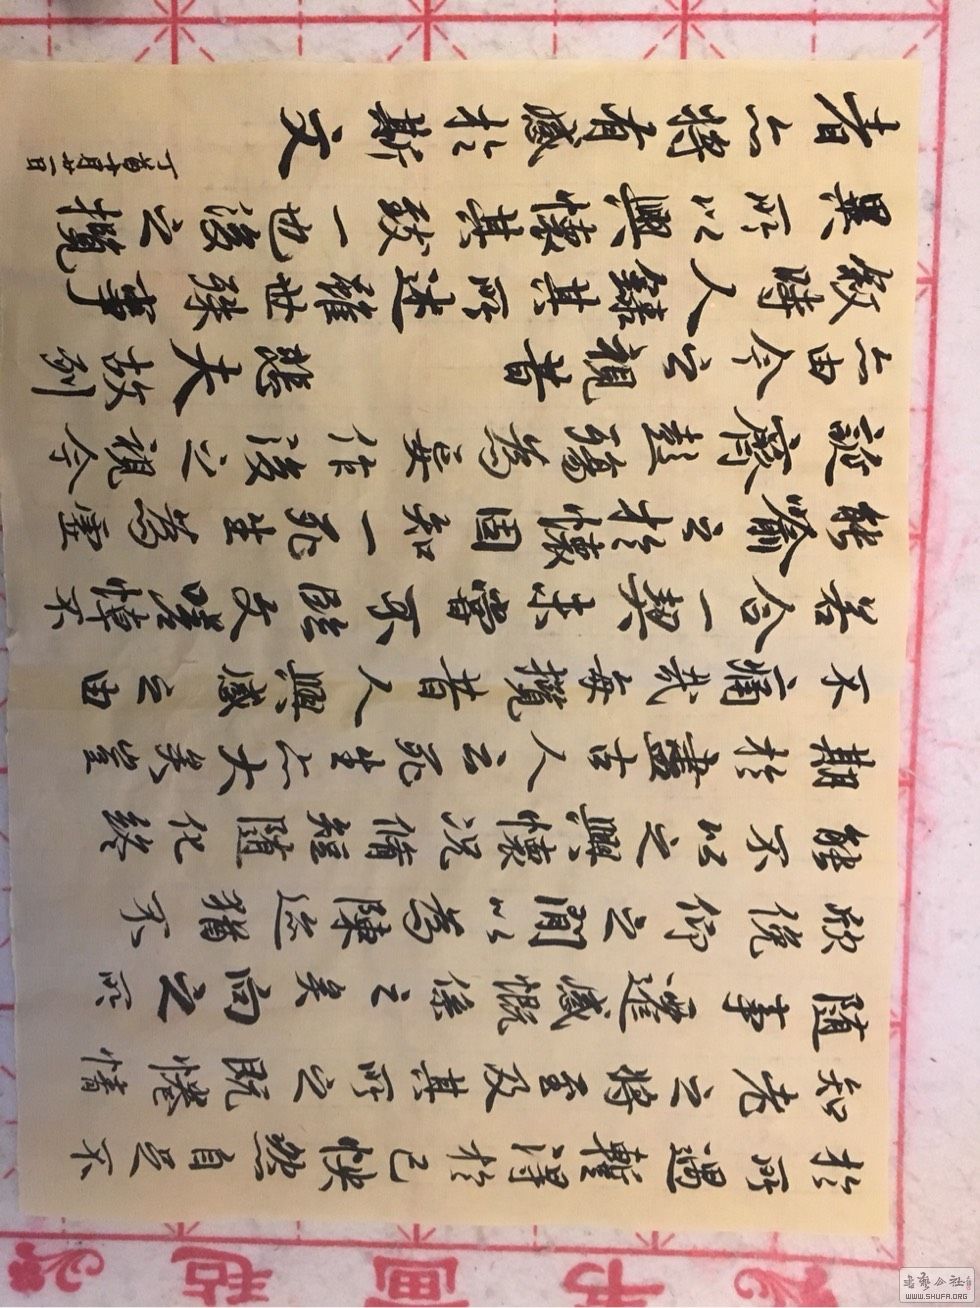 於所遇蹔得於己快然自足不
知老之將至及其所之既惓情
随事遷感慨係之矣向之所
欣俛仰之閒以為陳迹猶不
能不以之興懷況脩短随化終
期於盡古人云死生亦大矣豈
不痛哉每攬昔人興感之由
若合一契未嘗不臨文嗟悼不
能喻之於懷固知一死生為虛
誕齊彭殤為妄作後之視今
亦由今之視昔 悲夫故列
敘時人錄其所述雖世殊事
異所以興懷其致一也後之攬
者亦將有感於斯文
丁酉十月廿一日
书画毡
书艺公社
WWW.SHUFA.ORG